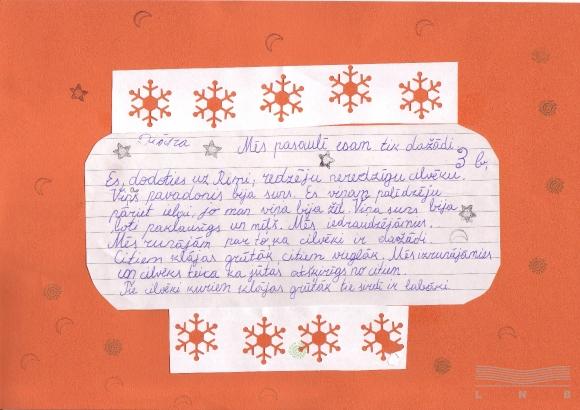 Mēs pasaulē esam tik dažādi
3 b,
Es, dodoties uz Rimi, redzēju neredzīgu cilvēku.
Viņš pavadonis bija suns. Es viņam palīdzēju
pāriet ielai, jo man viņa bija žēl. Viņa suns bija
ļoti paklausīgs un mīļš. Mēs iedraudzējāmies.
Mēs runājām par to, ka cilvēki ir dažādi.
Citiem klājas grūtāk, citiem vieglāk. Mēs izrunājāmies
un cilvēks teica ka jūtas atšķirīgs no citiem.
Tie cilvēki kuriem klājas grūtāk tie sirdī ir labāki.
L N B